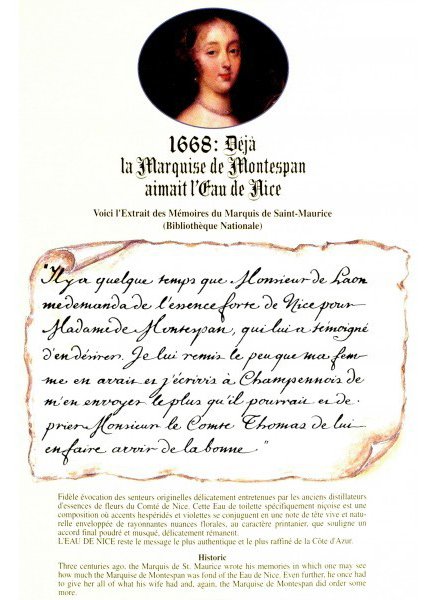 1668: Déjà
la Marquise de Montespan
aimait l'Eau de Nice
Voici l'Extrait des Mémoires du Marquis de Saint-Maurice
(Bibliothèque Nationale)
"Il y a quelque temps que Monsieur de Laon
me demanda de l'essence forte de Nice pour
Madame de Montespan, qui lui a témoigné
d'en désirer. Je lui remis le peu que ma fem-
me en avait et j'écrivis à Champennois de
m'en envoyer le plus qu'il pourrait et de
prier Monsieur le Comte Thomas de lui
en faire avoir de la bonne"
Fidèle évocation des senteurs originelles délicatement entretenues par les anciens distillateurs
d'essences de fleurs du Comté de Nice. Cette Eau de toilette spécifiquement niçoise est une
composition où accents hespéridés et violettes se conjuguent en une note de tête vive et nat-
urelle enveloppée de rayonnantes nuances florales, au caractère printanier, que souligne un
accord final poudré et musqué, délicatement rémanent.
L'EAU DE NICE reste le message le plus authentique et le plus raffiné de la Côte d'Azur.
Historic
Three centuries ago, the Marquis de St. Maurice wrote his memories in which one may see
how much the Marquise de Montespan was fond of the Eau de Nice. Even further, he once had
to give her all of what his wife had and, again, the Marquise de Montespan did order some
more.